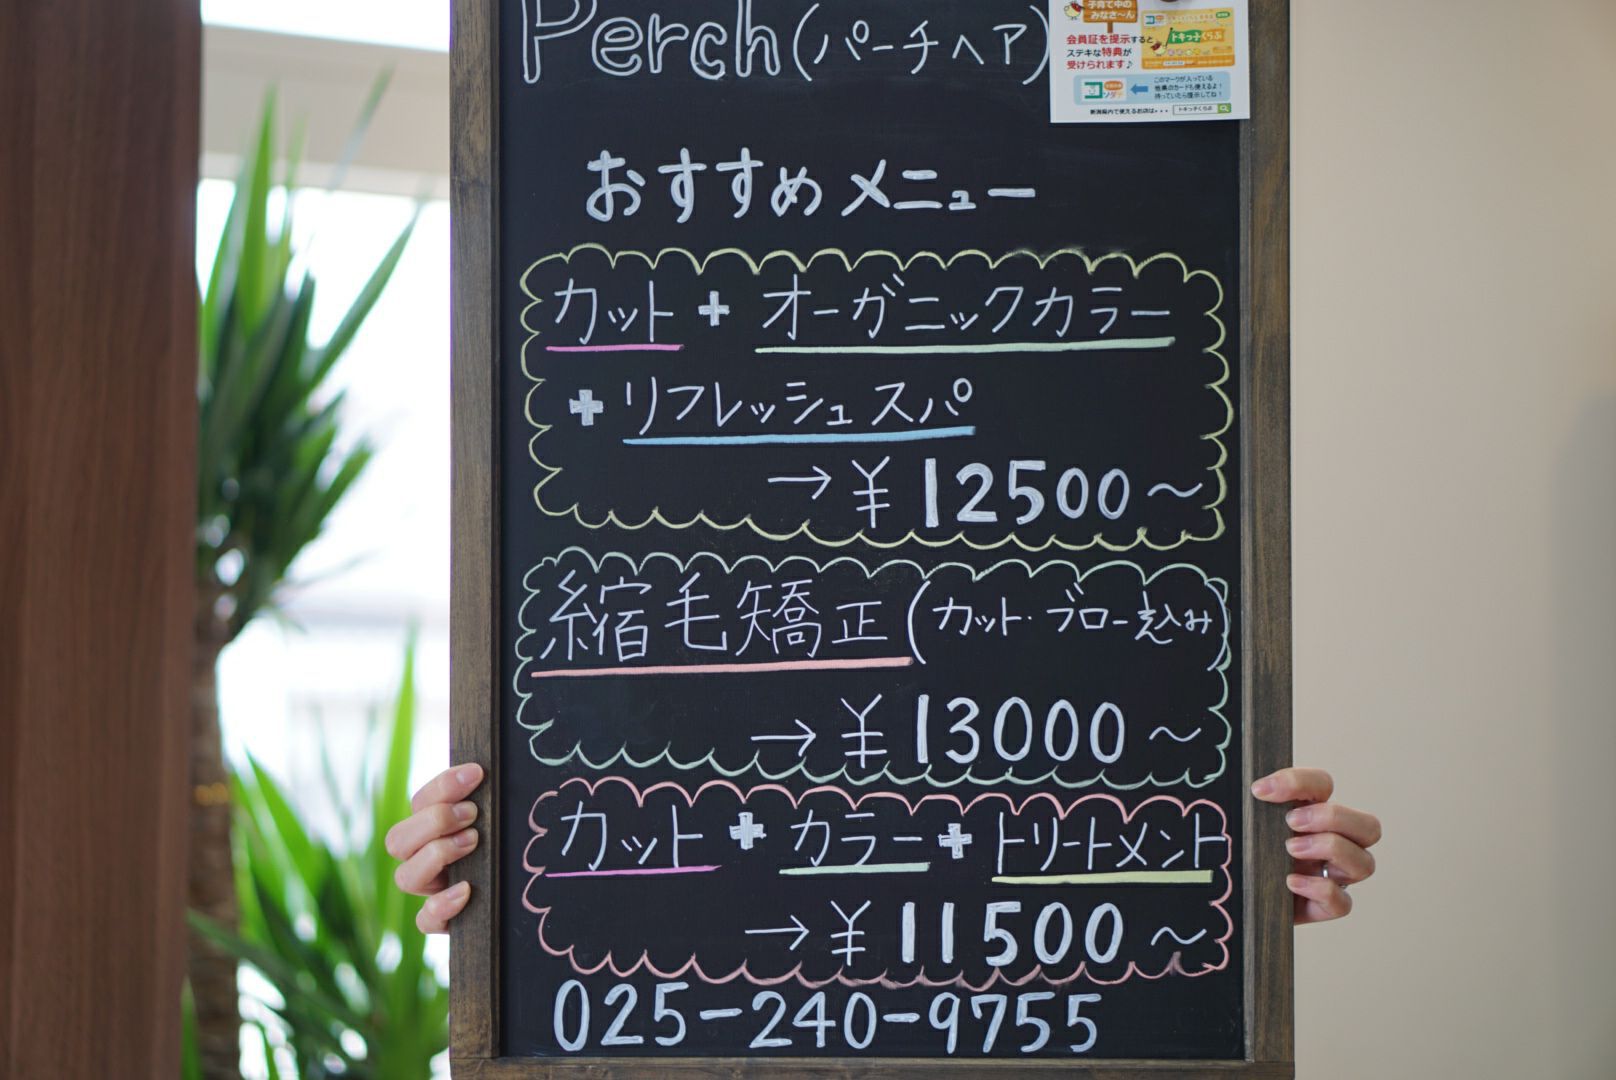 Perch(パーチヘア)
子育て中の
みなさ〜ん
会員証を提示すると
ステキな特典が
受けられます♪
トキっ子くらぶ
このマークが入っている
他県のカードも使えるよ!
持っていたら提示してね!
新潟県内で使えるお店は・・・ トキっ子くらぶ
おすすめメニュー
カット + オーガニックカラー
+ リフレッシュスパ
→ ¥12500〜
縮毛矯正(カット・ブロー込み)
→ ¥13000〜
カット + カラー + トリートメント
→ ¥11500〜
025-240-9755